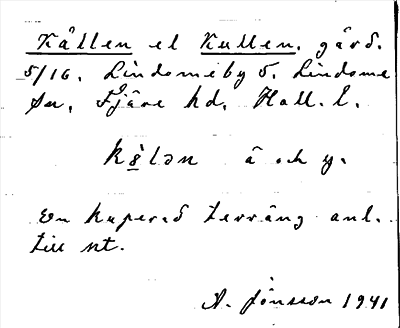 Kållen el Kullen, gård.
5/16. Lindomeby 5. Lindome
sn, Fjäre hd, Hall. l.
å och y.
En kuperad terräng anl.
till nt.
A. Jönsson 1941